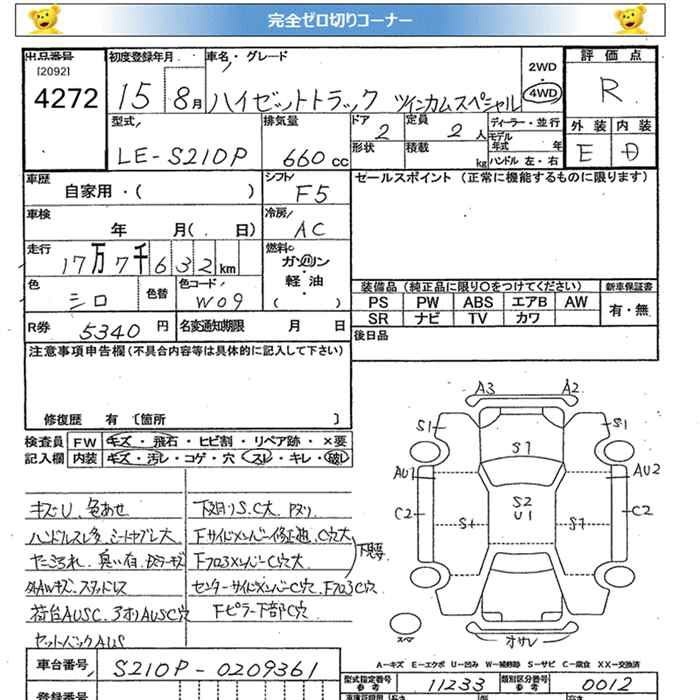 完全ゼロ切りコーナー
出品番号
[2092]
4272
初度登録年月
15 8月
車名・グレード
ハイゼットトラック ツインカムスペシャル
2WD
・
4WD
評価点
R
型式
LE-S210P
排気量
660cc
ドア
2
定員
2人
形状
積載
kg
ディーラー・並行
モデル年式 年
ハンドル 左・右
外装 内装
E D
車歴
自家用・( )
シフト
F5
セールスポイント (正常に機能するものに限ります)
車検
年 月( . 日)
冷房
AC
走行
17万7千632km
燃料
ガソリン
・
軽油
( )
色
シロ
色替
色コード
W09
装備品 (純正品に限り○をつけてください)
新車保証書
PS PW ABS エアB AW
SR ナビ TV カワ
有・無
R券 5340円
名変通知期限 月 日
後日品
注意事項申告欄 (不具合内容等は具体的に記入して下さい)
修復歴 有 〔箇所 〕
検査員記入欄
FW キズ・飛石・ヒビ割・リペア跡・×要
内装 キズ・汚レ・コゲ・穴・スレ・キレ・破レ
キズU、色あせ
ハンドルスレ多
シートヤブレ大
臭い有
スタッドレス
荷台AUSC、アオリAUSC穴
セットバックAUS
下廻りS.C大
Fサイドメンバー修正
C穴大
Fクロスメンバー C穴大
センターサイドメンバーC穴、FクロスC穴
Fピラー下部C穴
A3 A2
S1 S1
S1
AU1 AU2
S2
U1
C2 C2
S1 S7
スペア
オサレ
A－キズ E－エクボ U－凹み W－補修跡 S－サビ C－腐食 XX－交換済
車台番号
S210P-0209361
型式指定番号
参考
11233
類別区分番号
参考
0012
登録番号